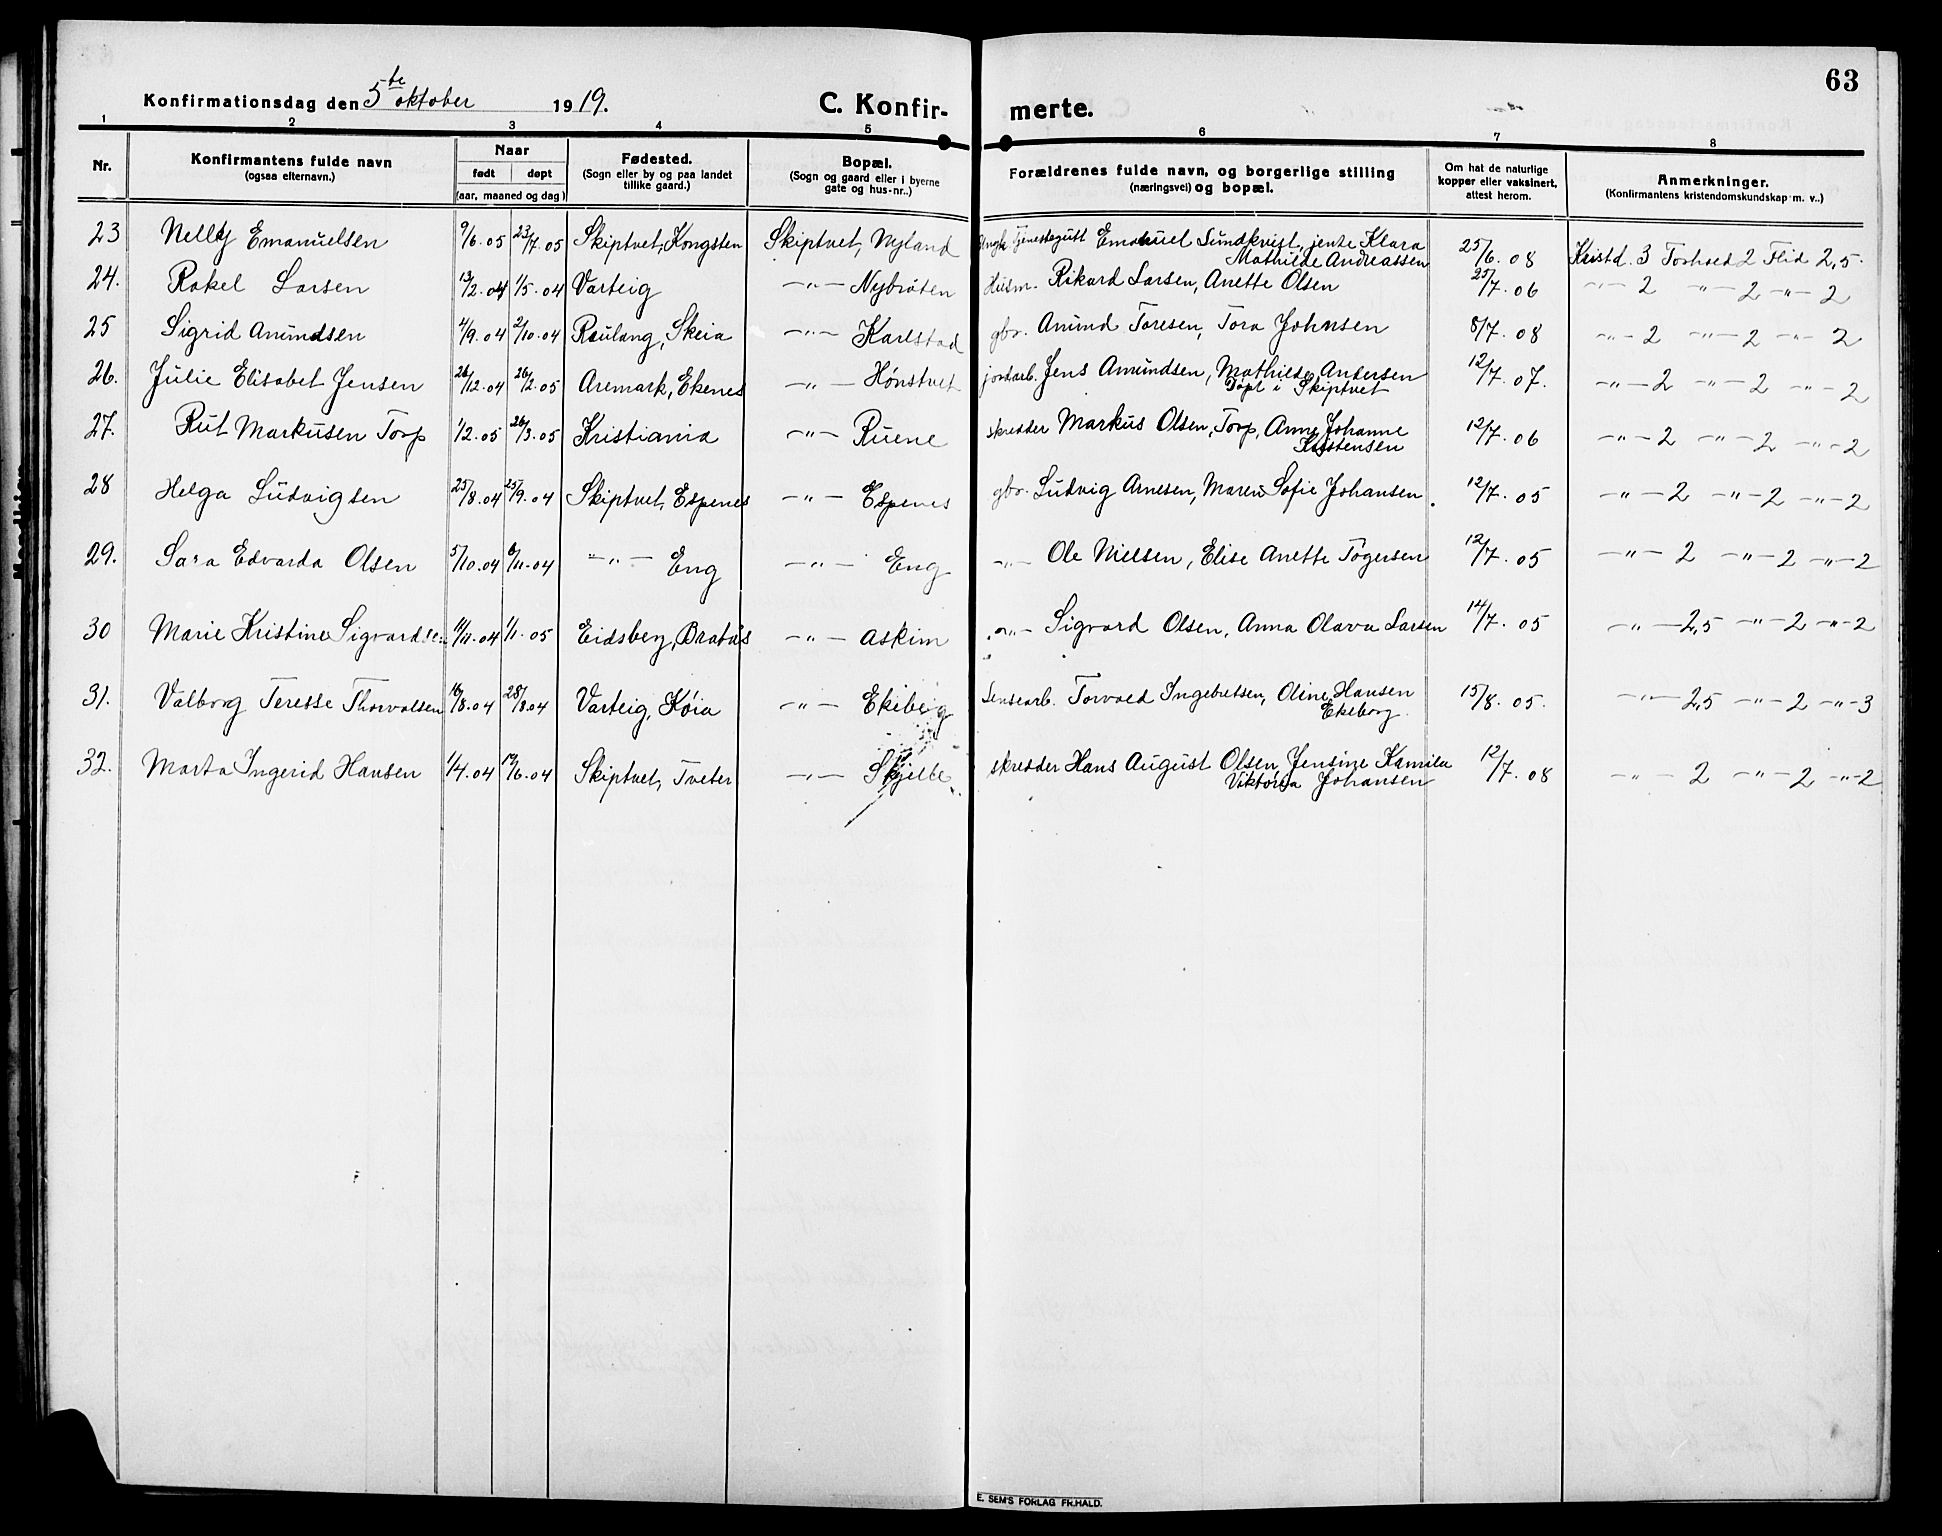 63
Konfirmationsdag den 5te oktober 1919. C. Konfir- merte.
1 2 3 4 5 6 7 8
Nr. Konfirmantens fulde navn (ogsaa efternavn.) Naar født døpt (aar, maaned og dag) Fødested. (Sogn eller by og paa landet tillike gaard.) Bopæl. (Sogn og gaard eller i byerne gate og hus-nr..) Forældrenes fulde navn, og borgerlige stilling (næringsvei) og bopæl. Om hat de naturlige kopper eller vaksinert, attest herom. Anmerkninger. (Konfirmantens kristendomskundskap m. v..)
23 Nelly Emanuelsen 9/6.05 23/7.05 Skiptvet, Kongsten Skiptvet, Nyland Ungk. Tjenestegutt Emanuel Sundkvist, jente Klara Mathilde Andreassen 25/6.08 Kristd. 3 Forhold 2 Flid 2,5.
24. Rakel Larsen 13/2.04 1/5.04 Varteig -"- Nybråten Husm. Rikard Larsen, Anette Olsen 25/7.06 -"- 2 -"- 2 -"- 2
25 Sigrid Anundsen 4/9.04 2/10.04 Raulang, Skeia -"- Karlstad gbr. Anund Toresen, Tora Johnsen 8/7.08 -"- 2 -"- 2 -"- 2
26. Julie Elisabet Jensen 26/12.04 26/2.05 Aremark, Ekenes -"- Hønstvet jordarb. Jens Amundsen, Mathilde Andersen Døpt i Skiptvet 12/7.07. -"- 2 -"- 2 -"- 2
27. Rut Markusen Torp 1/2.05 26/3.05 Kristiania -"- Ruene skredder Markus Olsen, Torp, Anne Johanne Kristensen 12/7.06 -"- 2 -"- 2 -"- 2
28 Helga Ludvigsen 25/8.04 25/9.04 Skiptvet, Espenes -"- Espenes gbr. Ludvig Arnesen, Maren Sofie Johansen. 12/7.05 -"- 2 -"- 2 -"- 2
29. Sara Edvarda Olsen 5/10.04 6/11.04 -"- Eng -"- Eng -"- Ole Nielsen, Elise Anette Tøgersen 12/7.05 -"- 2 -"- 2 -"- 2
30 Marie Kristine Sigvardsen 11/11.04 1/1.05 Eidsberg, Braatås -"- Askim -"- Sigvard Olsen, Anna Olava Larsen 14/7.05 -"- 2,5 -"- 2 -"- 2
31. Valborg Teresse Thorvalsen 16/8.04 28/8.04 Varteig, Køia -"- Ekeberg Lensearb. Torvald Ingebretsen, Oline Hansen Ekeberg. 15/8.05. -"- 2,5 -"- 2 -"- 3
32. Marta Ingerid Hansen 1/4.04 19/6.04 Skiptvet, Tveter -"- Skjelle skredder Hans August Olsen, Jensine Kamilla Viktoria Johansen 12/7.08 -"- 2 -"- 2 -"- 2
E. SEM'S FORLAG FR.HALD.